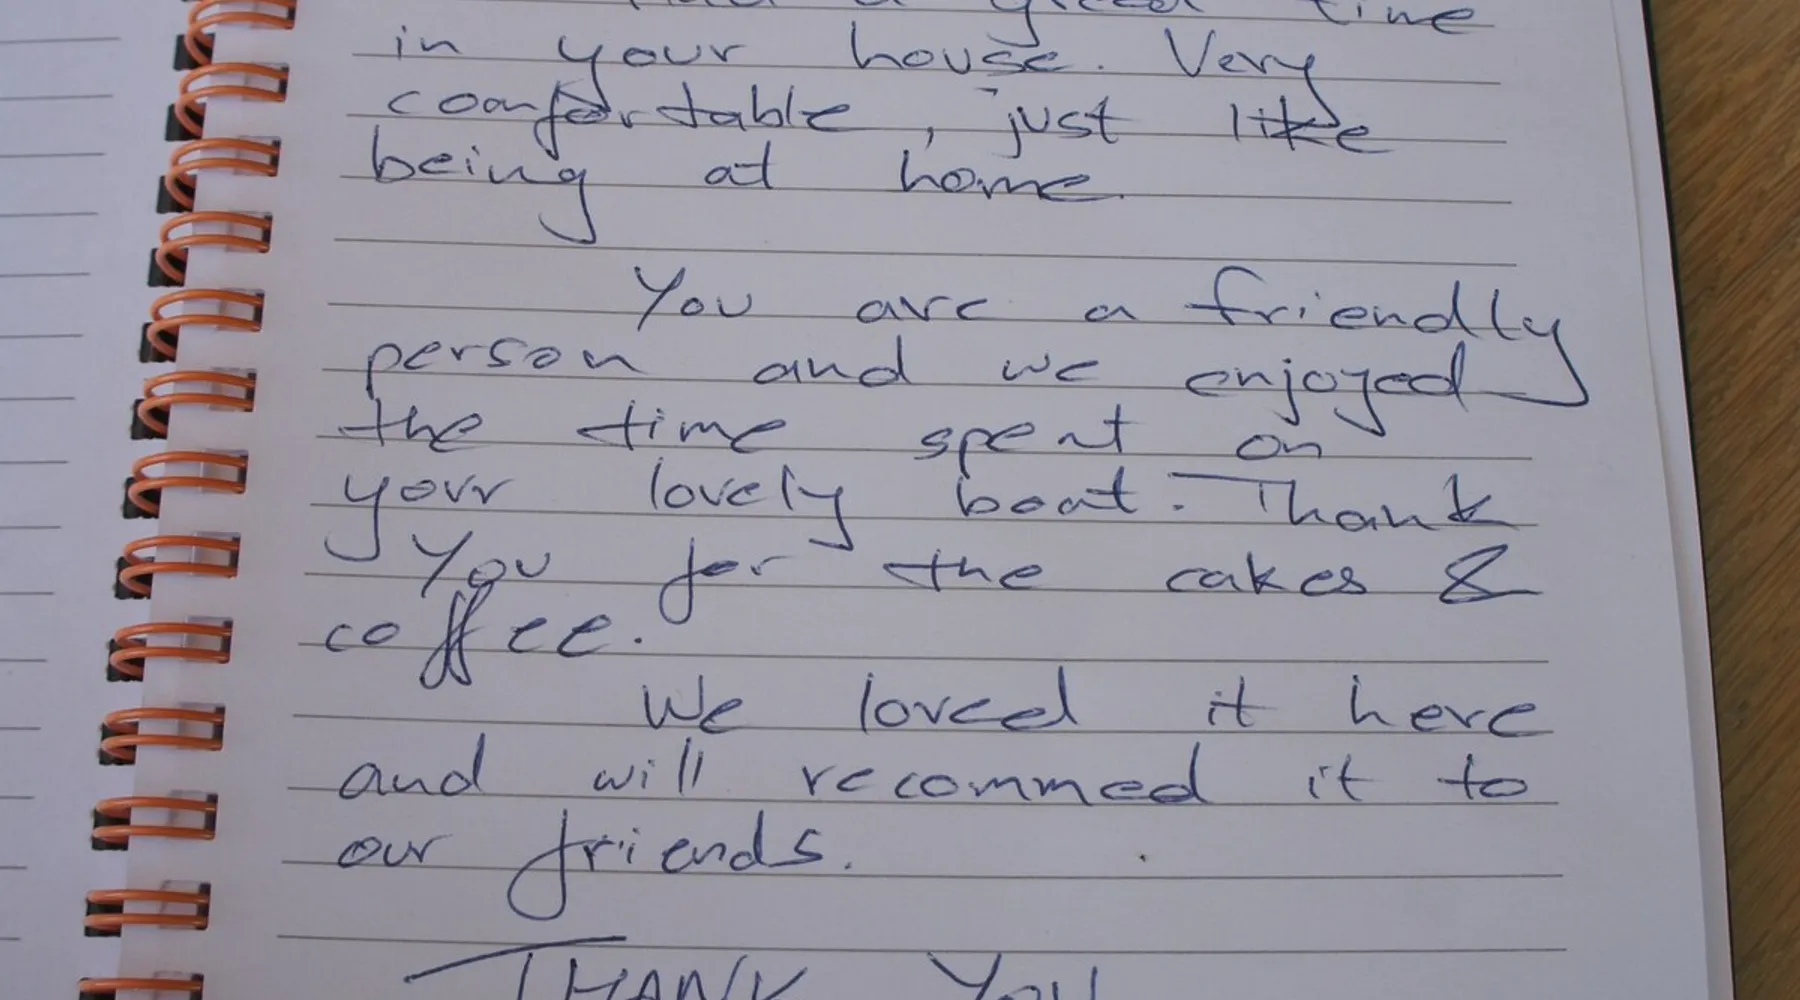 Had a great time
in your house. Very
comfortable, just like
being at home.
You are a friendly
person and we enjoyed
the time spent on
your lovely boat. Thank
You for the cakes &
coffee.
We loved it here
and will recommed it to
our friends.
THANK YOU